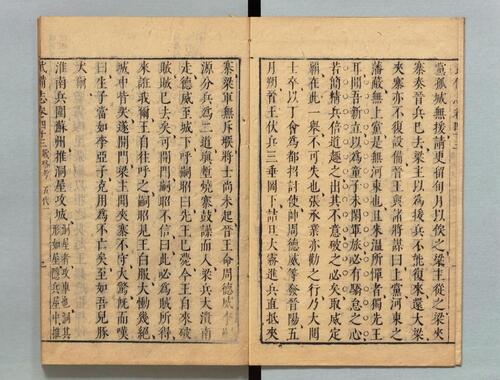 黨孤城無援請更留旬月以俟之梁主從之梁夾
寨奏晉兵已去梁主以為援兵不能復來還大梁
夾寨亦不復設備晉王與諸將謀曰上黨河東之
藩蔽無上黨是無河東也且朱溫所憚者獨先王
耳聞吾新立以為童子未閑軍旅必有驕怠之心
若簡精兵倍道趨之出其不意破之必矣取威定
霸在此一舉不可失也張承業亦勸之行乃大閱
士卒以丁會為都招討使帥周德威等發晉陽五
月朔晉王伏兵三垂岡下詰旦大霧進兵直抵夾
寨梁軍無斥堠將士尚未起晉王命周德威李嗣
源分兵為二道填塹燒寨鼓譟而入梁兵大潰南
走德威至城下呼嗣昭曰先王已薨今王自來破
賊賊已去矣可開門嗣昭不信曰此必為賊所得
來誑我爾王自往呼之嗣昭見王白服大慟幾絕
城中皆哭遂開門梁主聞夾寨不守大驚既而嘆
曰生子當如李亞子克用為不亡矣至如吾兒豚
犬爾
淮南兵圍蘇州推洞屋攻城
洞屋者攻車也洞其
形如屋隱兵屋中推
武備志卷四十三戰略考 五代